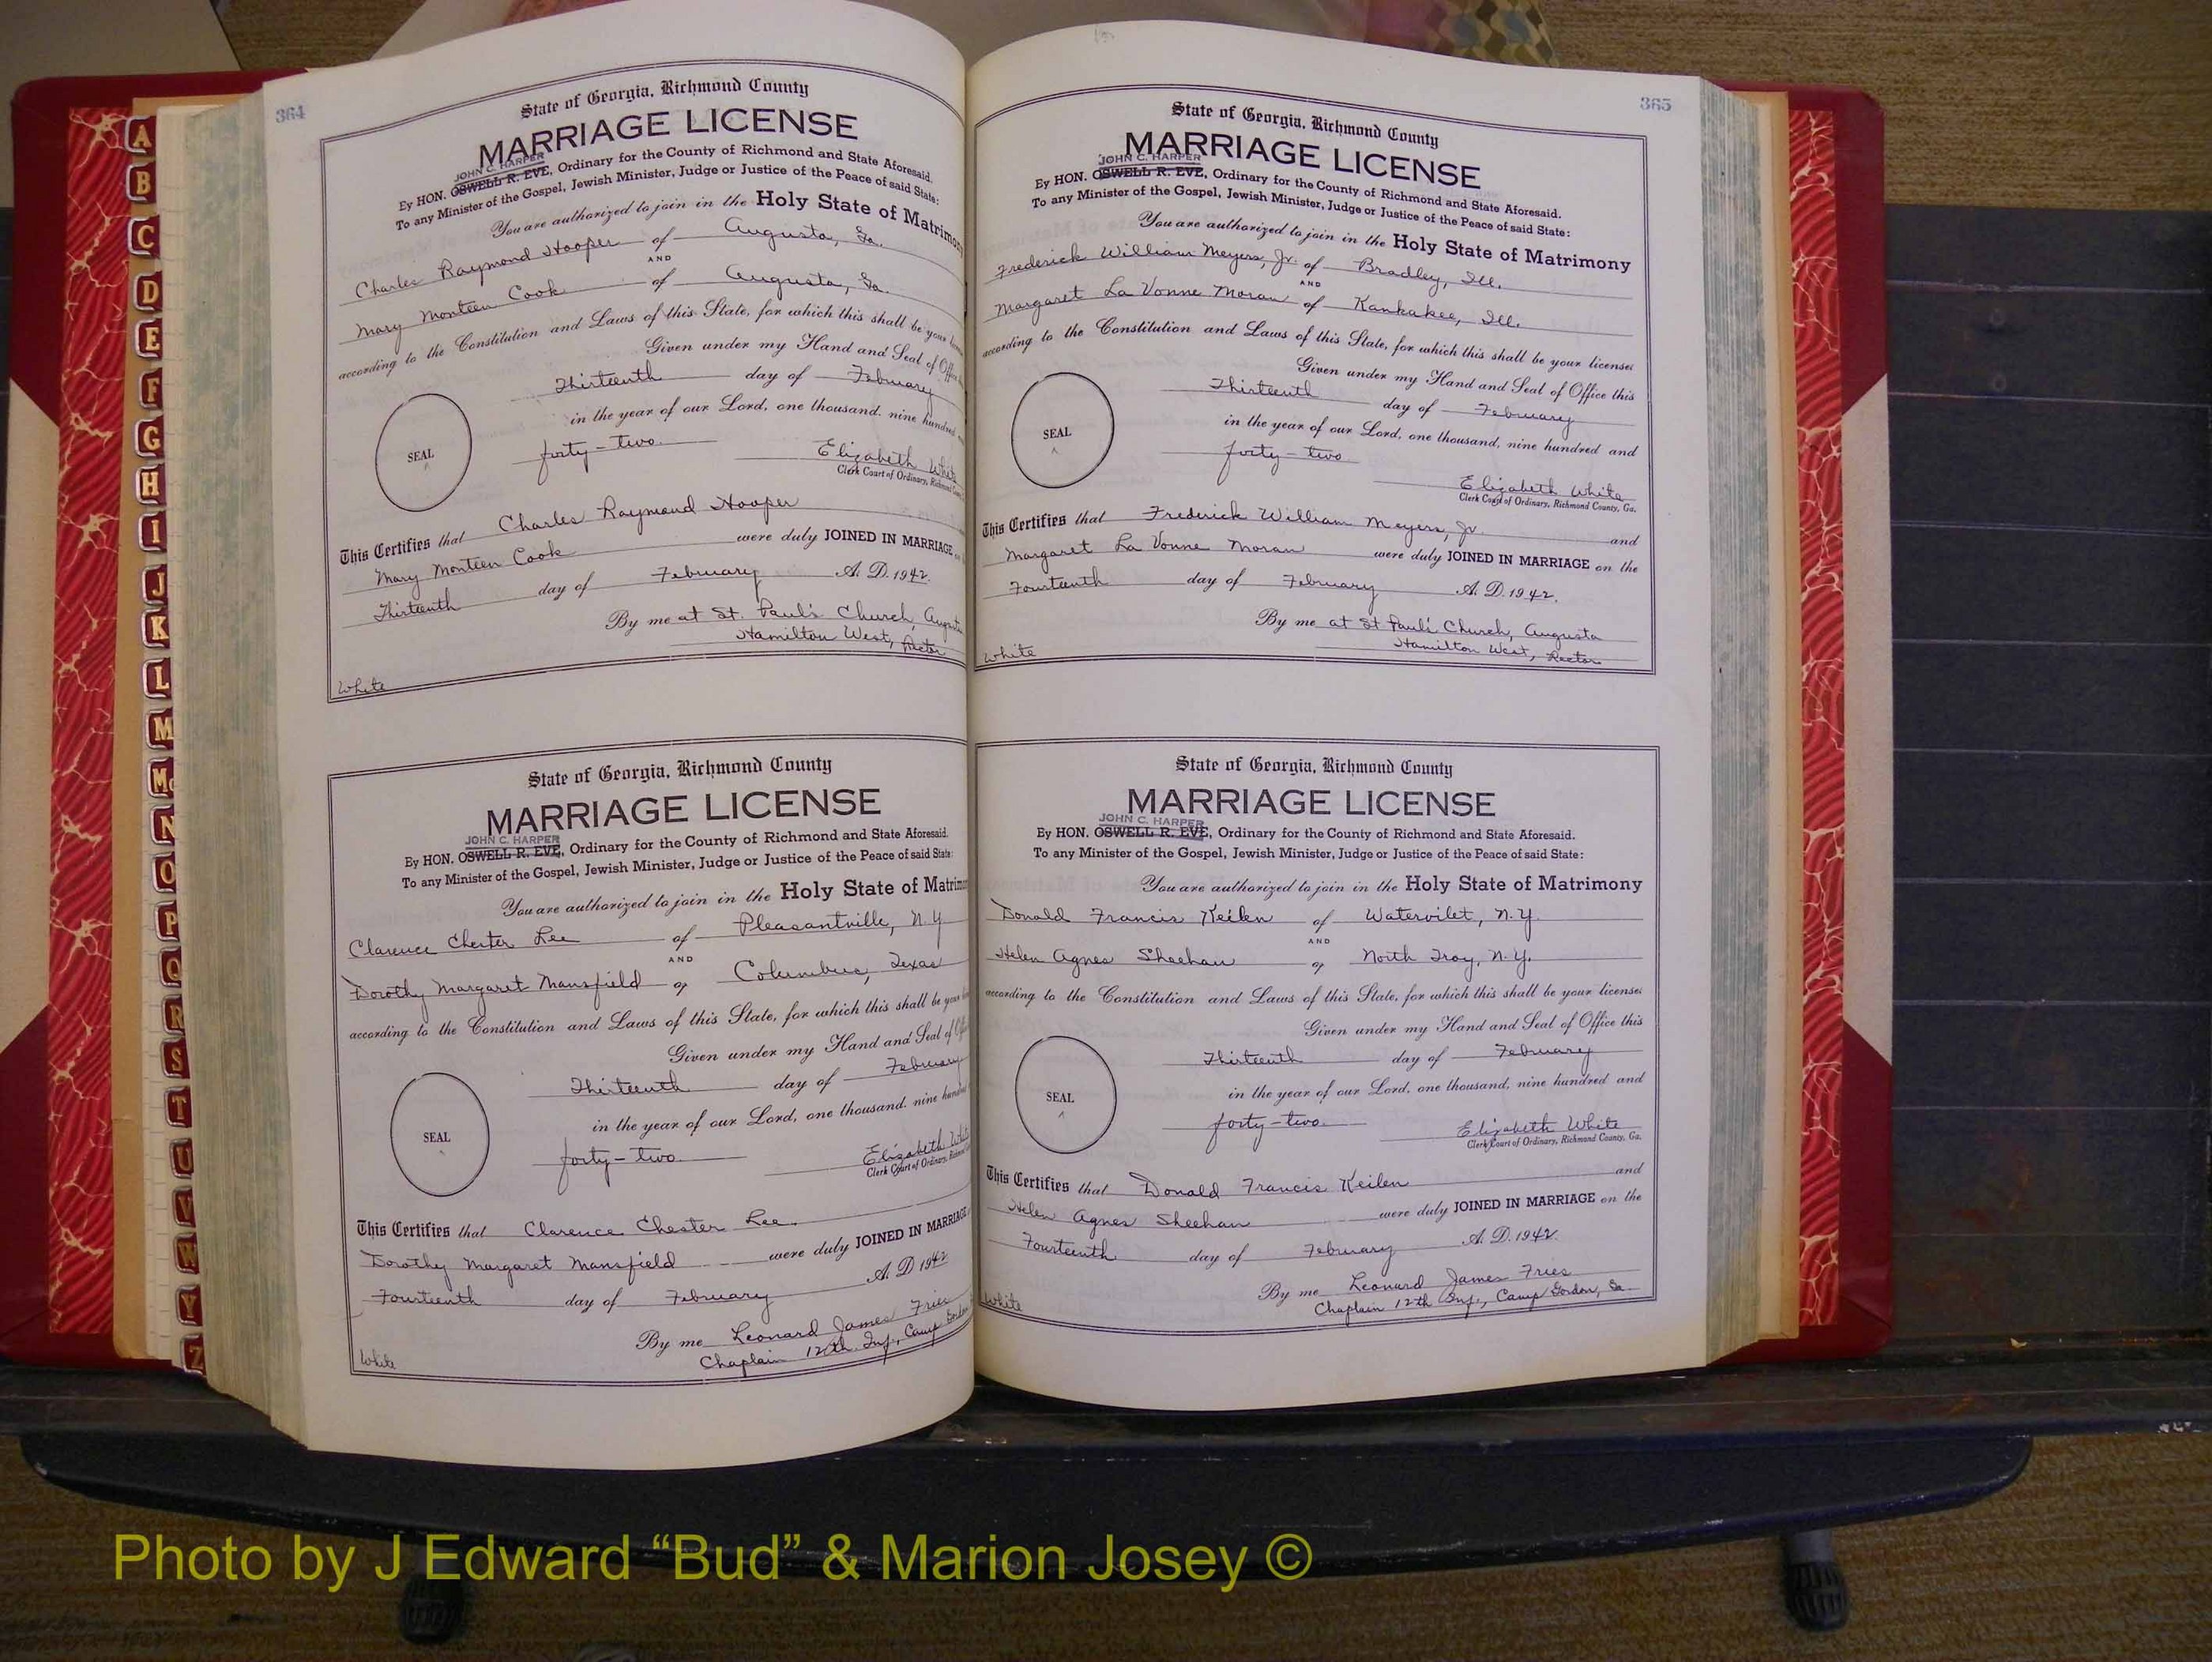 364
State of Georgia, Richmond County
MARRIAGE LICENSE
JOHN C. HARPER
By HON. OSWELL R. EVE, Ordinary for the County of Richmond and State Aforesaid.
To any Minister of the Gospel, Jewish Minister, Judge or Justice of the Peace of said State:
You are authorized to join in the Holy State of Matrimony
Charles Raymond Hooper of Augusta, Ga.
AND
Mary Monteen Cook of Augusta, Ga.
according to the Constitution and Laws of this State, for which this shall be your
Given under my Hand and Seal of Office
Thirteenth day of February
in the year of our Lord, one thousand, nine hundred
forty-two
SEAL
Elizabeth White
Clerk Court of Ordinary, Richmond
This Certifies that Charles Raymond Hooper
Mary Monteen Cook were duly JOINED IN MARRIAGE
Thirteenth day of February A. D. 1942.
By me at St. Paul's Church, Augusta
Hamilton West, Rector
White
State of Georgia, Richmond County
MARRIAGE LICENSE
JOHN C. HARPER
By HON. OSWELL R. EVE, Ordinary for the County of Richmond and State Aforesaid.
To any Minister of the Gospel, Jewish Minister, Judge or Justice of the Peace of said State:
You are authorized to join in the Holy State of Matrimony
Clarence Chester Lee of Pleasantville, N.Y
AND
Dorothy Margaret Mansfield of Columbus, Texas
according to the Constitution and Laws of this State, for which this shall be your
Given under my Hand and Seal of
Thirteenth day of February
in the year of our Lord, one thousand, nine hundred
forty-two
SEAL
Elizabeth White
Clerk Court of Ordinary, Richmond
This Certifies that Clarence Chester Lee
Dorothy Margaret Mansfield were duly JOINED IN MARRIAGE
Fourteenth day of February A. D 1942
By me Leonard James Fries
Chaplain 12th. Inf., Camp Gordon
White
365
State of Georgia, Richmond County
MARRIAGE LICENSE
JOHN C. HARPER
By HON. OSWELL R. EVE, Ordinary for the County of Richmond and State Aforesaid.
To any Minister of the Gospel, Jewish Minister, Judge or Justice of the Peace of said State:
You are authorized to join in the Holy State of Matrimony
Frederick William Meyers, Jr. of Bradley, Ill.
AND
Margaret La Vonne Moran of Kankakee, Ill.
according to the Constitution and Laws of this State, for which this shall be your license:
Given under my Hand and Seal of Office this
Thirteenth day of February
in the year of our Lord, one thousand, nine hundred and
forty-two
SEAL
Elizabeth White
Clerk Court of Ordinary, Richmond County, Ga.
This Certifies that Frederick William Meyers, Jr. and
Margaret La Vonne Moran were duly JOINED IN MARRIAGE on the
Fourteenth day of February A. D. 1942.
By me at St Paul's Church, Augusta
Hamilton West, Rector
White
State of Georgia, Richmond County
MARRIAGE LICENSE
JOHN C. HARPER
By HON. OSWELL R. EVE, Ordinary for the County of Richmond and State Aforesaid.
To any Minister of the Gospel, Jewish Minister, Judge or Justice of the Peace of said State:
You are authorized to join in the Holy State of Matrimony
Donald Francis Keilen of Watervilet, N.Y.
AND
Helen Agnes Sheehan of North Troy, N.Y.
according to the Constitution and Laws of this State, for which this shall be your license:
Given under my Hand and Seal of Office this
Thirteenth day of February
in the year of our Lord, one thousand, nine hundred and
forty-two.
SEAL
Elizabeth White
Clerk Court of Ordinary, Richmond County, Ga.
This Certifies that Donald Francis Keilen and
Helen Agnes Sheehan were duly JOINED IN MARRIAGE on the
Fourteenth day of February A. D. 1942.
By me Leonard James Fries
Chaplain 12th Inf., Camp Gordon, Ga
White
A
B
C
D
E
F
G
H
I
J
K
L
M
Mc
N
O
P
Q
R
S
T
U
V
W
Y
Z
Photo by J Edward “Bud” & Marion Josey ©